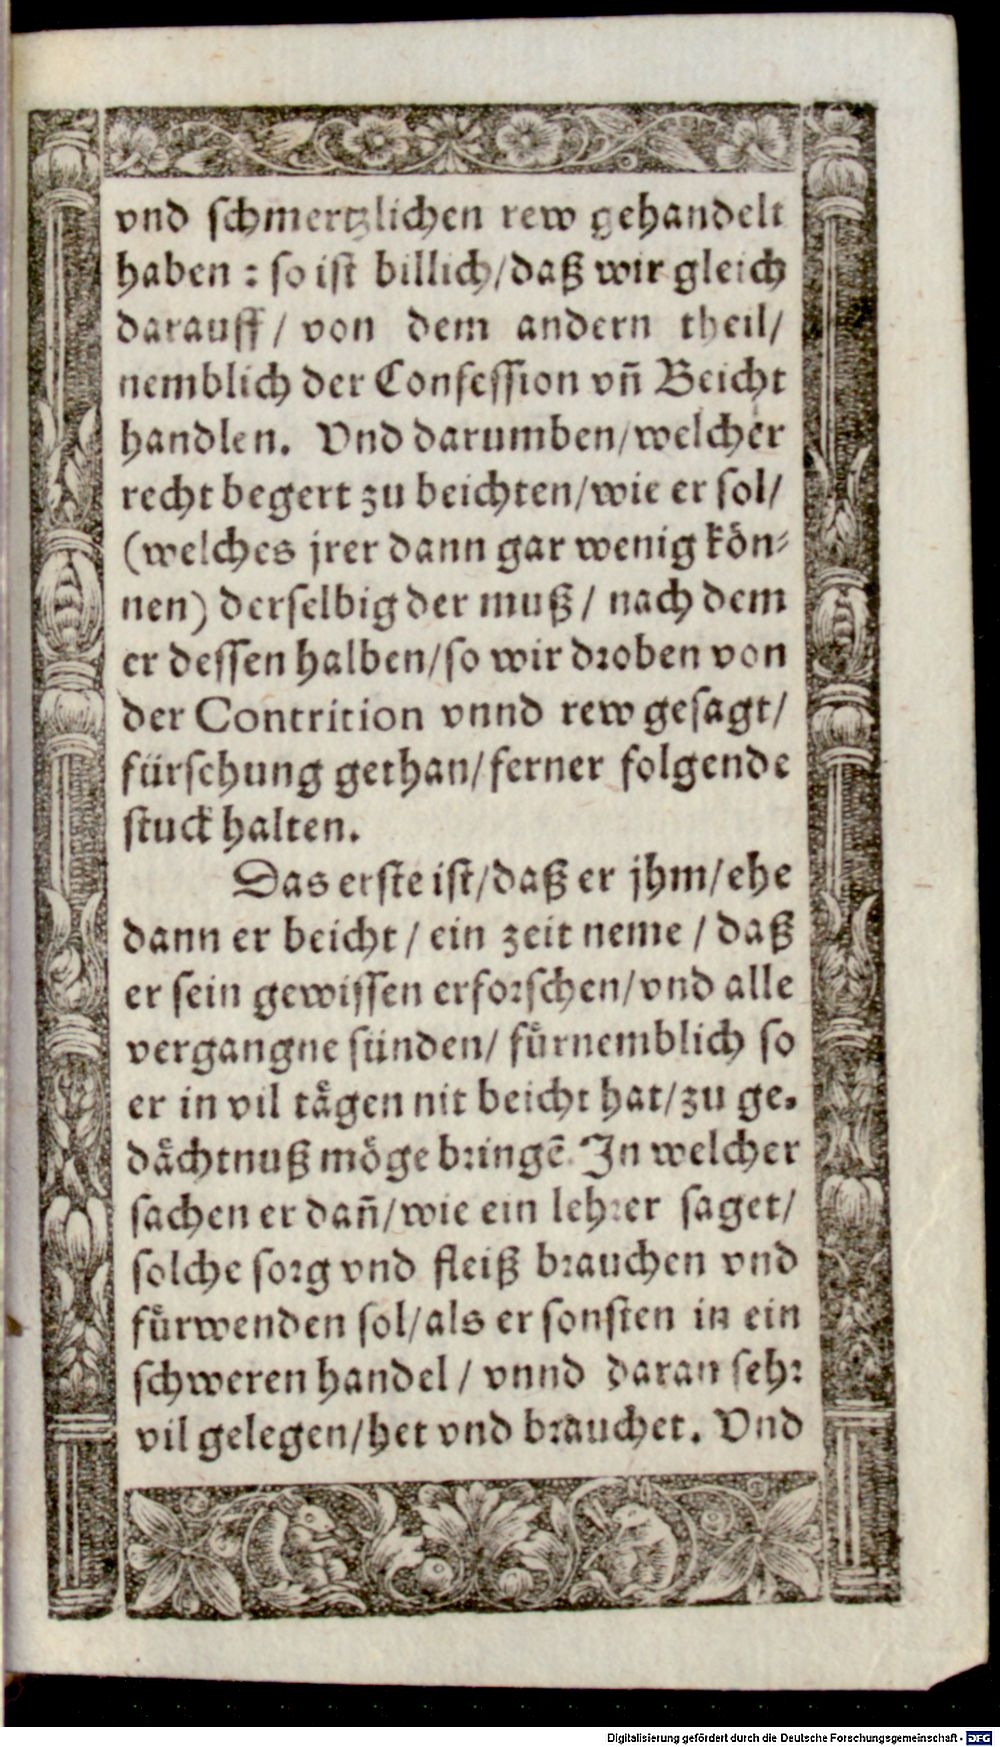 vnd schmertzlichen rew gehandelt
haben : so ist billich/daß wir gleich
darauff / von dem andern theil/
nemblich der Confession vñ Beicht
handlen. Vnd darumben/welcher
recht begert zu beichten/wie er sol/
(welches jrer dann gar wenig koͤn⸗
nen) derselbig der muß / nach dem
er dessen halben/so wir droben von
der Contrition vnnd rew gesagt/
fürsehung gethan/ferner folgende
stuck halten.
Das erste ist/daß er jhm/ehe
dann er beicht / ein zeit neme / daß
er sein gewissen erforschen/vnd alle
vergangne sünden/ fuͤrnemblich so
er in vil taͤgen nit beicht hat/zu ge.
daͤchtnuß moͤge bringē. In welcher
sachen er dañ/wie ein lehrer saget/
solche sorg vnd fleiß brauchen vnd
fuͤrwenden sol/als er sonsten in ein
schweren handel / vnnd daran sehr
vil gelegen/het vnd brauchet. Vnd
Digitalisierung gefördert durch die Deutsche Forschungsgemeinschaft - DFG